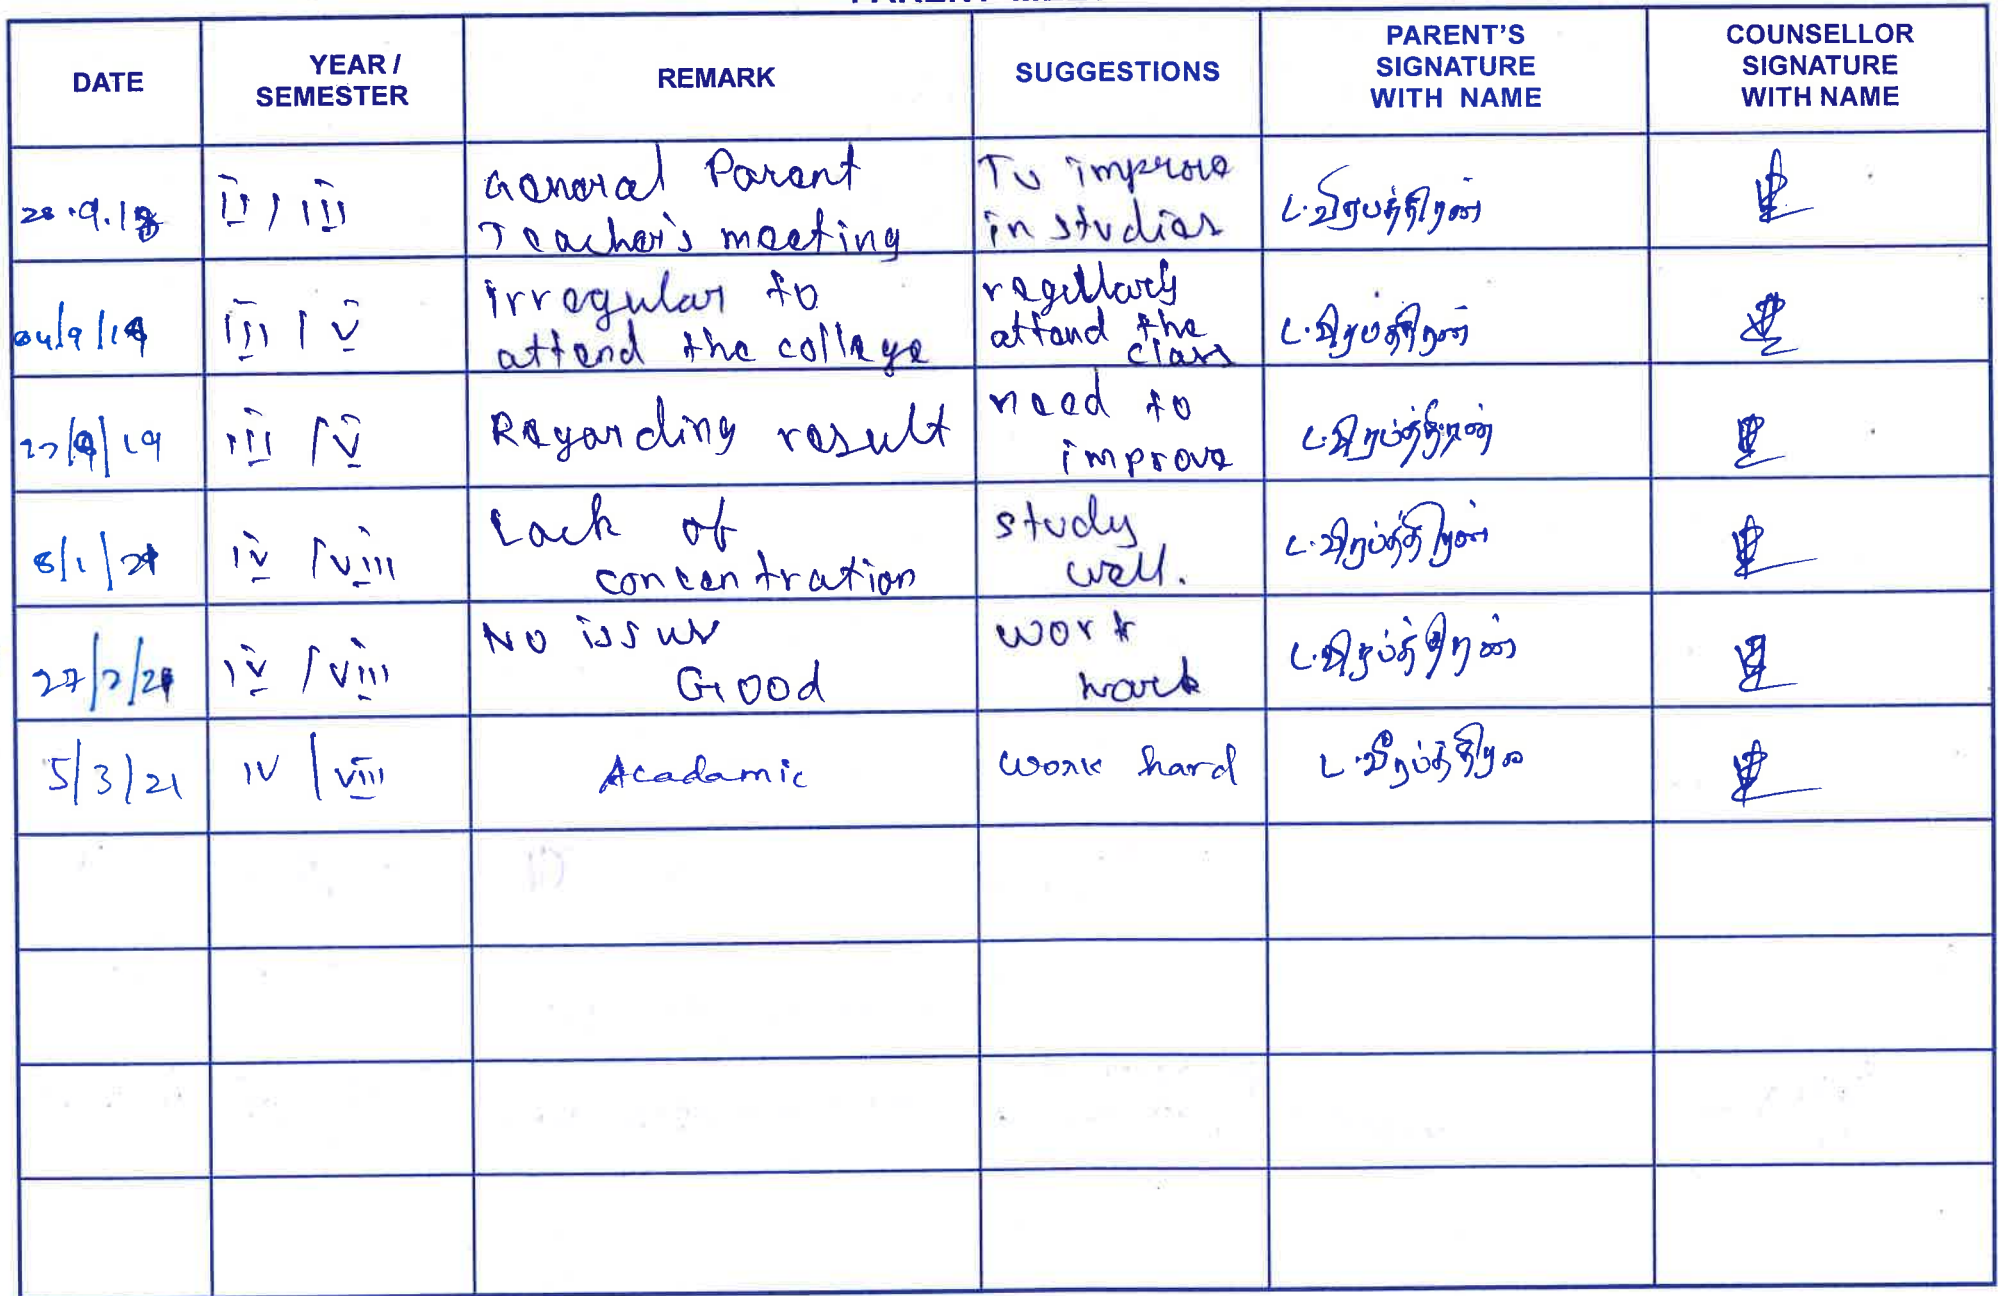 DATE
YEAR /
SEMESTER
REMARK
SUGGESTIONS
PARENT'S
SIGNATURE
WITH NAME
COUNSELLOR
SIGNATURE
WITH NAME
28.9.18
II / III
General Parent
Teacher's meeting
To improve
in studies
ட.வீரபத்திரன்
04/9/19
III / V
irregular to
attend the college
regularly
attend the
class
ட.வீரபத்திரன்
27/9/19
III / V
Regarding result
need to
improve
ட.வீரபத்திரன்
8/1/21
IV / VIII
Lack of
concentration
study
well.
ட.வீரபத்திரன்
27/2/21
IV / VIII
No issue
Good
work
hard
ட.வீரபத்திரன்
5/3/21
IV / VIII
Acadamic
work hard
ட.வீரபத்திரன்